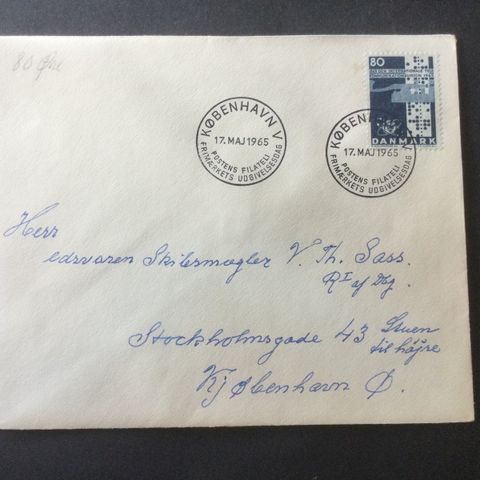 80 Øre
80
DANMARK
KØBENHAVN V
17. MAJ 1965
POSTENS FILATELI
FRIMÆRKETS UDGIVELSESDAG
KØBENHAVN
17. MAJ 1965
POSTENS FILATELI
FRIMÆRKETS UDGIVELSESDAG
Herr
edsvoren Skibsmægler V. Th. Sass.
R I af Dbg.
Stockholmsgade 43 Stuen
til højre
Kjøbenhavn Ø.